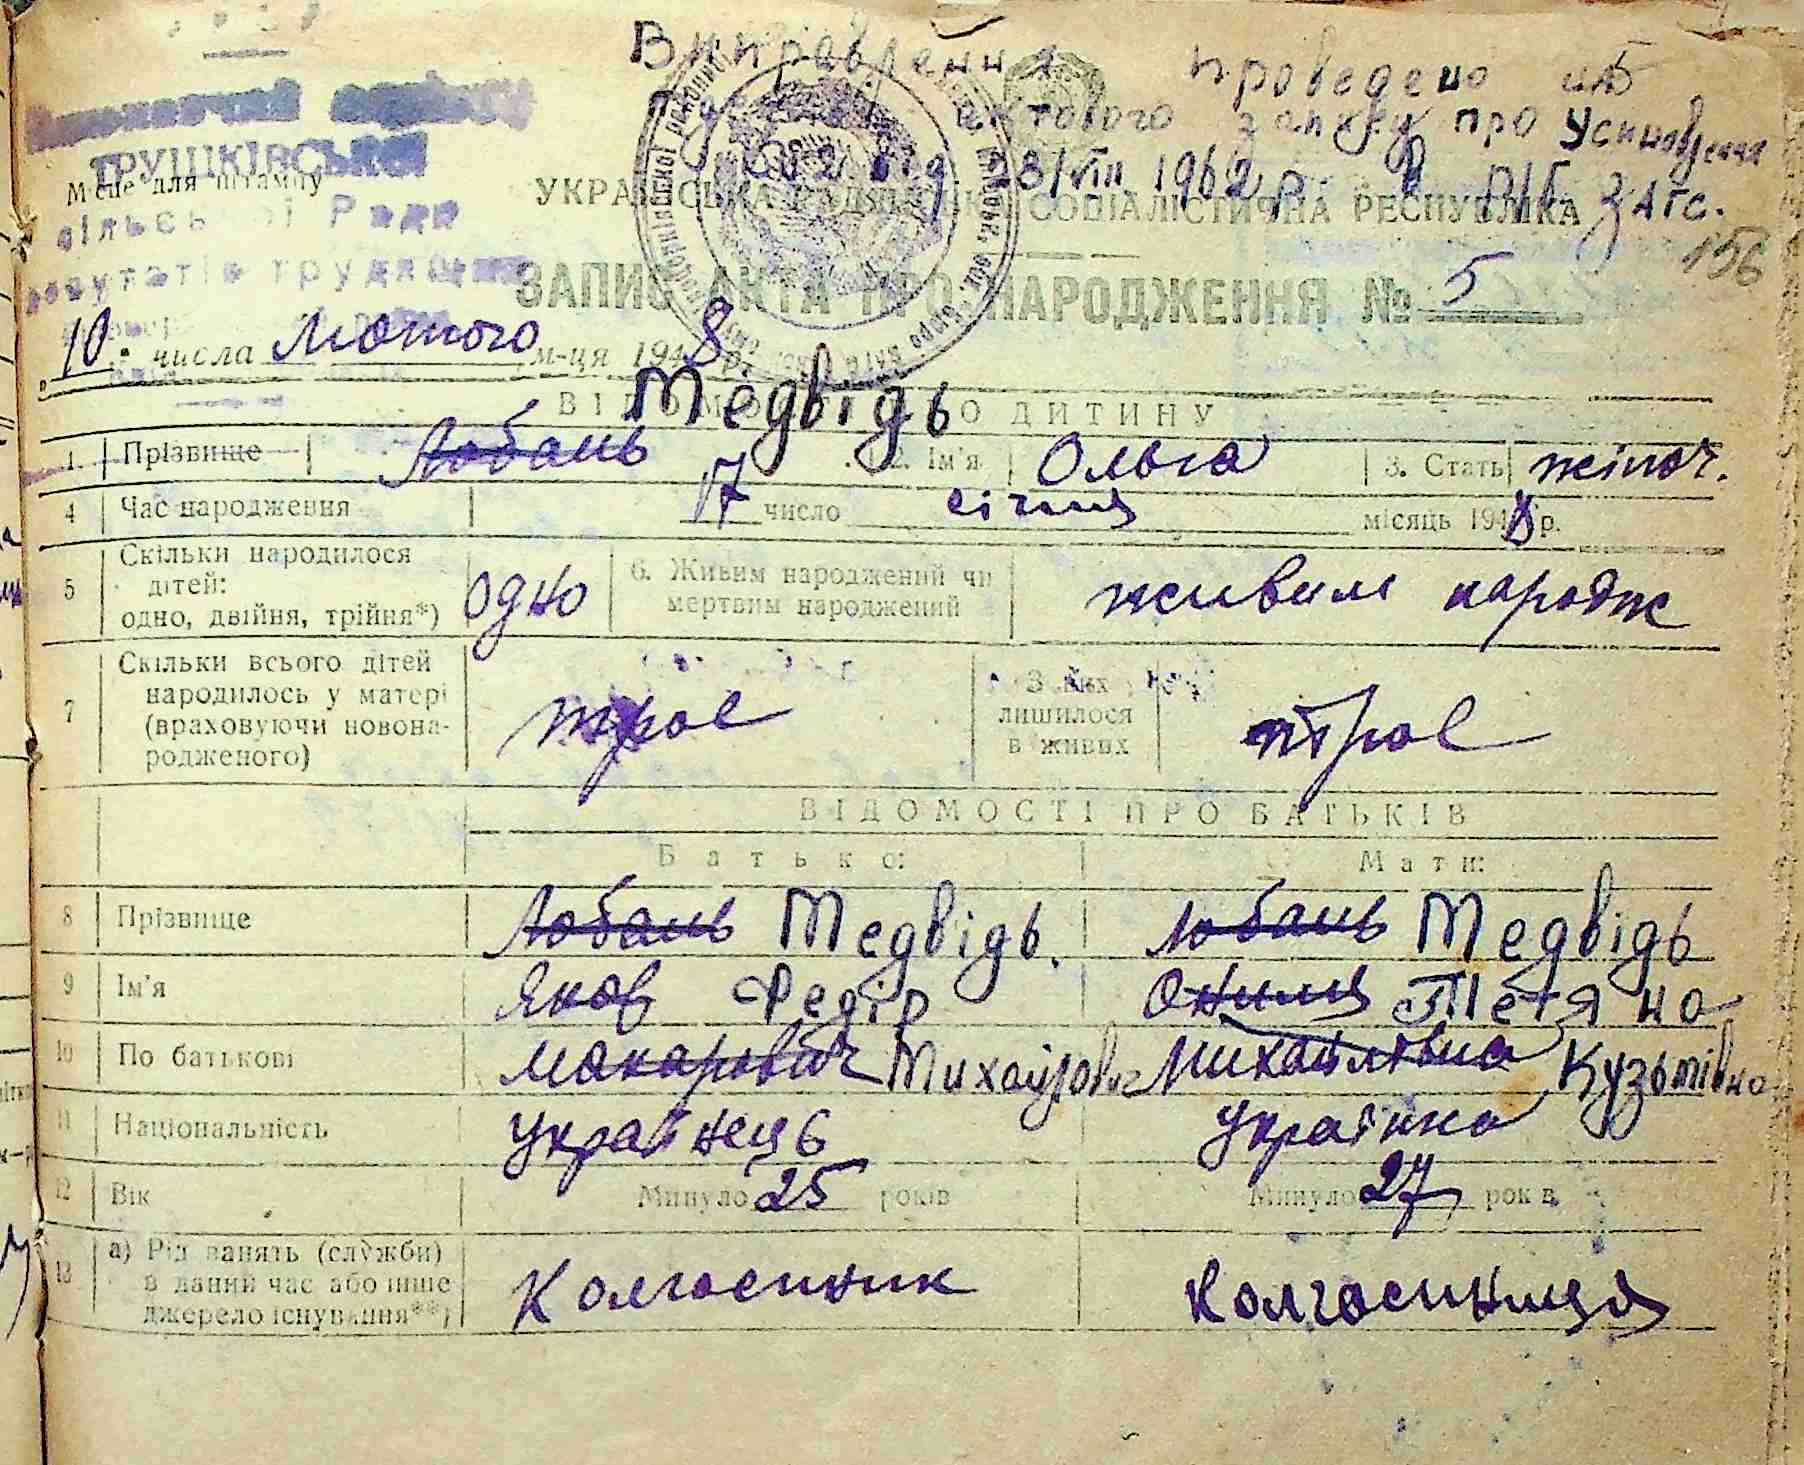 Виправлення проведено на
підставі актового запису про Усиновлення
від 28/VIII 1962 р. в р/б ЗАГС.
156
Виконавчий комітет
ТРУШКІВСЬКОЇ
Місце для штампу
сільської Ради
депутатів трудящих
УКРАЇНСЬКА РАДЯНСЬКА СОЦІАЛІСТИЧНА РЕСПУБЛІКА
ЗАПИС АКТА ПРО НАРОДЖЕННЯ № 5
"10" числа Лютого м-ця 1948 р.
ВІДОМОСТІ ПРО ДИТИНУ
Медвідь
1 Прізвище Лобань 2. Ім'я Ольга 3. Стать жіноч.
4 Час народження 17 число січня місяць 1948 р.
5 Скільки народилося дітей: одно, двійня, трійня*) одно 6. Живим народжений чи мертвим народжений живим народж
7 Скільки всього дітей народилось у матері (враховуючи новонародженого) троє З них лишилося в живих троє
ВІДОМОСТІ ПРО БАТЬКІВ
Батько: Мати:
8 Прізвище Лобань Медвідь. Лобань Медвідь
9 Ім'я Яков Федір Тетяна
10 По батькові Макарович Михайлович Михайлівна Кузьмівна
11 Національність Українець Українка
12 Вік Минуло 25 років Минуло 27 років
13 а) Рід занять (служби) в даний час або інше джерело існування**) Колгоспник Колгоспниця